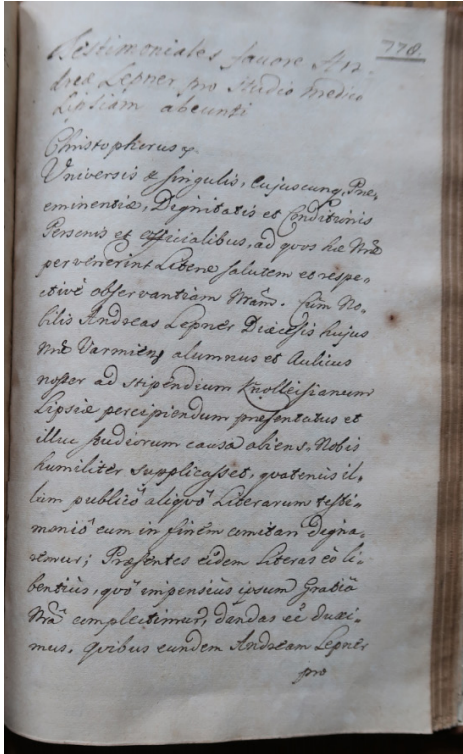 778.
Testimoniales favore An-
dreæ Lepner pro studio medico
Lipsiam abeunti
Christophorus
Universis et singulis, cujuscunq, Præ-
eminentiæ, Dignitatis et Conditionis
Personis et officialibus, ad quos hæ Nræ
pervenerint Literæ salutem et respe-
ctivè observantiam Nram. Cum No-
bilis Andreas Lepner Diæcesis hujus
Nræ Varmiens alumnus et Aulicus
noster ad stipendium Knolleisianum
Lipsiæ percipiendum præsentatus et
illuc studiorum causa abiens, Nobis
humiliter supplicasset, quatenus il-
lum publicô aliquô Literarum testi-
moniô eum in finem comitari digna-
remur; Præsentes eidem Literas eò li-
bentiùs, quò impensiùs ipsum Gratiâ
Nrâ complectimur, dandas ei duxi-
mus, quibus eundem Andream Lepner
pro